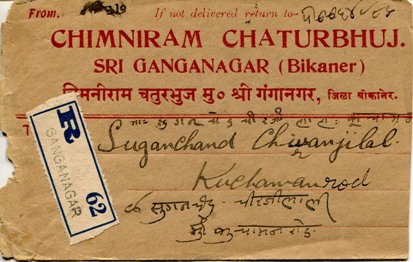 From. If not delivered return to-
CHIMNIRAM CHATURBHUJ.
SRI GANGANAGAR (Bikaner)
चिमनीराम चतुरभुज मु० श्री गंगानगर, जिला बीकानेर.
R
GANGANAGAR
62
Suganchand Chiranjilal
Kuchamanrod
सुगनचंद चीरंजीलाल
कुचामन रोड